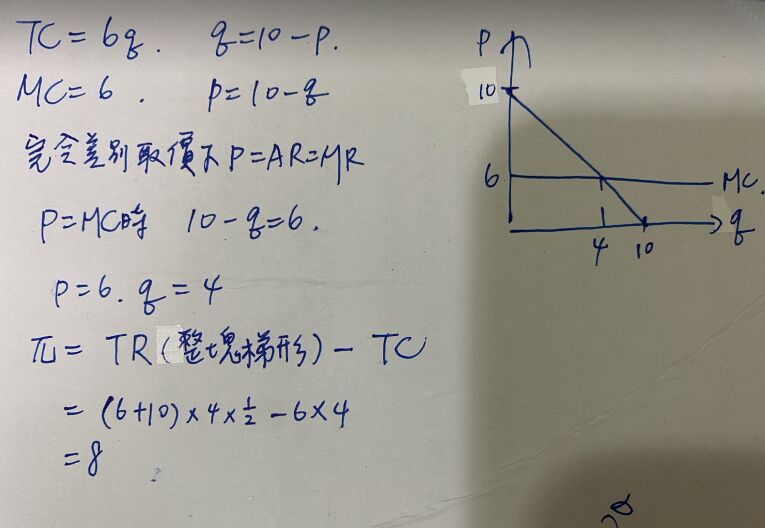 TC = 6q. q = 10 - p.
MC = 6. p = 10 - q
完全差別取價下 P = AR = MR
P = MC時 10 - q = 6.
p = 6. q = 4
π = TR (整塊梯形) - TC
= (6+10) × 4 × 1/2 - 6 × 4
= 8
P
10
6
MC.
4 10
q